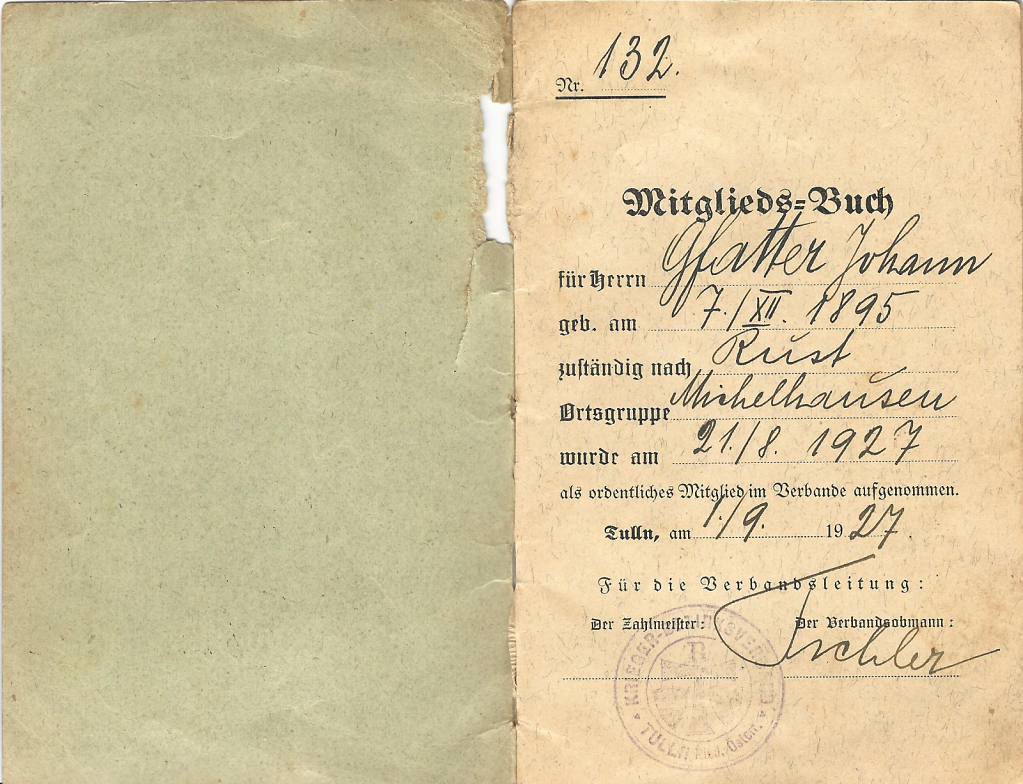 Nr. 132.
Mitglieds=Buch
für Herrn Gfatter Johann
geb. am 7./XII. 1895
zuständig nach Rust
Ortsgruppe Michelhausen
wurde am 21./8. 1927
als ordentliches Mitglied im Verbande aufgenommen.
Tulln, am 1./9. 1927.
Für die Verbandsleitung:
Der Zahlmeister: Der Verbandsobmann:
Tischler
KRIEGER-BEZIRKSVERBAND
TULLN Nied. Österr.